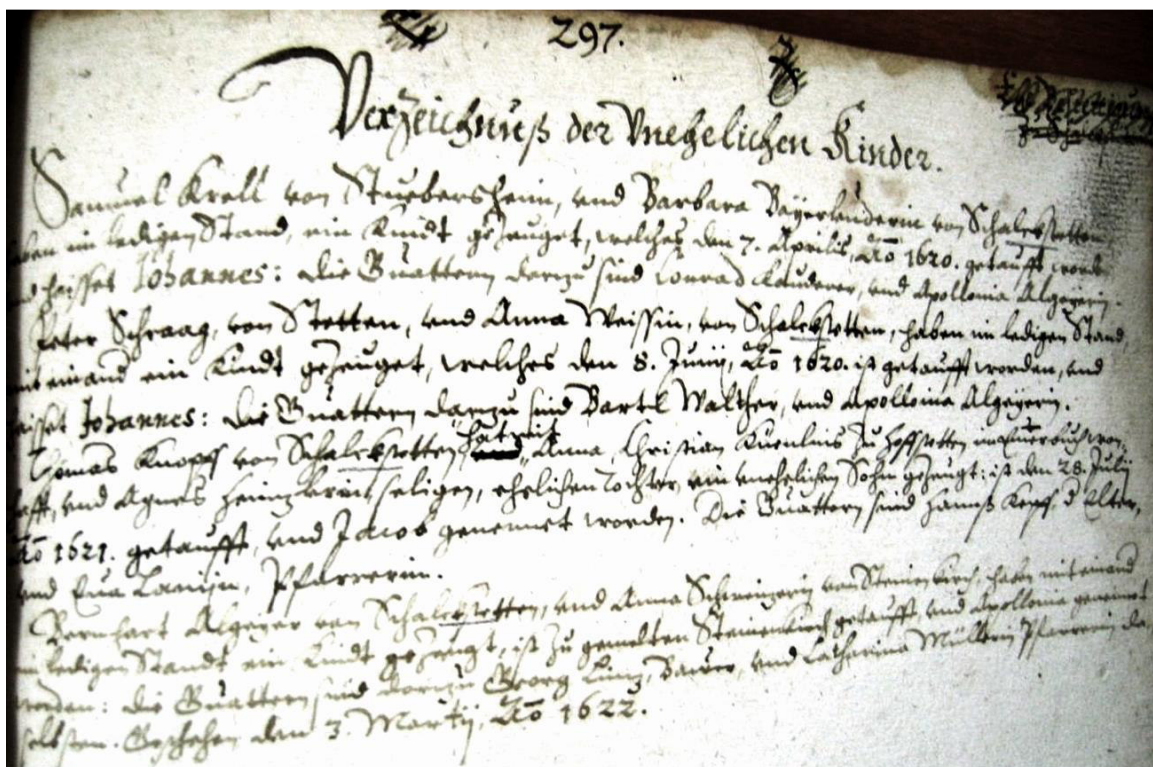 297.
Verzeichnuß der Vnehelichen Kinder.
Samuel Kroll von Stuebersheim, vnd Barbara Bayerlenderin von Schalckstetten
haben im ledigen Stand, ein Kindt gezeuget, welches den 7. Aprilis, Aō 1620. getaufft worden
vnd heisset Iohannes: die Gvattern darzu sind Conrad Kauderer, vnd Apollonia Algeyerin.
Peter Schraag, von Stetten, vnd Anna Weissin, von Schalckstetten, haben im ledigen Stand,
mit einand ein Kindt gezeuget, welches den 8. Junij, Aō 1620. ist getaufft worden, vnd
heisset Iohannes: die Gvattern darzu sind Bartl Walther, vnd Apollonia Algeyerin.
Thomas Knopf von Schalckstetten hat mit Anna, Christian Kuenlins zu Hoffstetten
vnd Agnes seligen, ehelichen Tochter, ein vnehelichen Sohn gezeugt: ist den 28. Julij
Aō 1621. getaufft, vnd Jacob genennet worden. Die Gvattern sind Hanß Kopf d Elter,
vnd Eua Pfarrerin.
Bernhart Algeyer von Schalckstetten, vnd Anna Schweizerin von Steinenkirch, haben mit einand
im ledigen Standt ein Kindt gezeugt, ist zu gemelten Steinenkirch getaufft, vnd Apollonia genennet
worden: die Gvattern sind darzu Georg Baur, vnd Catharina Müllerin Pfarrerin da
selbsten. Geschehen den 3. Martij, Aō 1622.